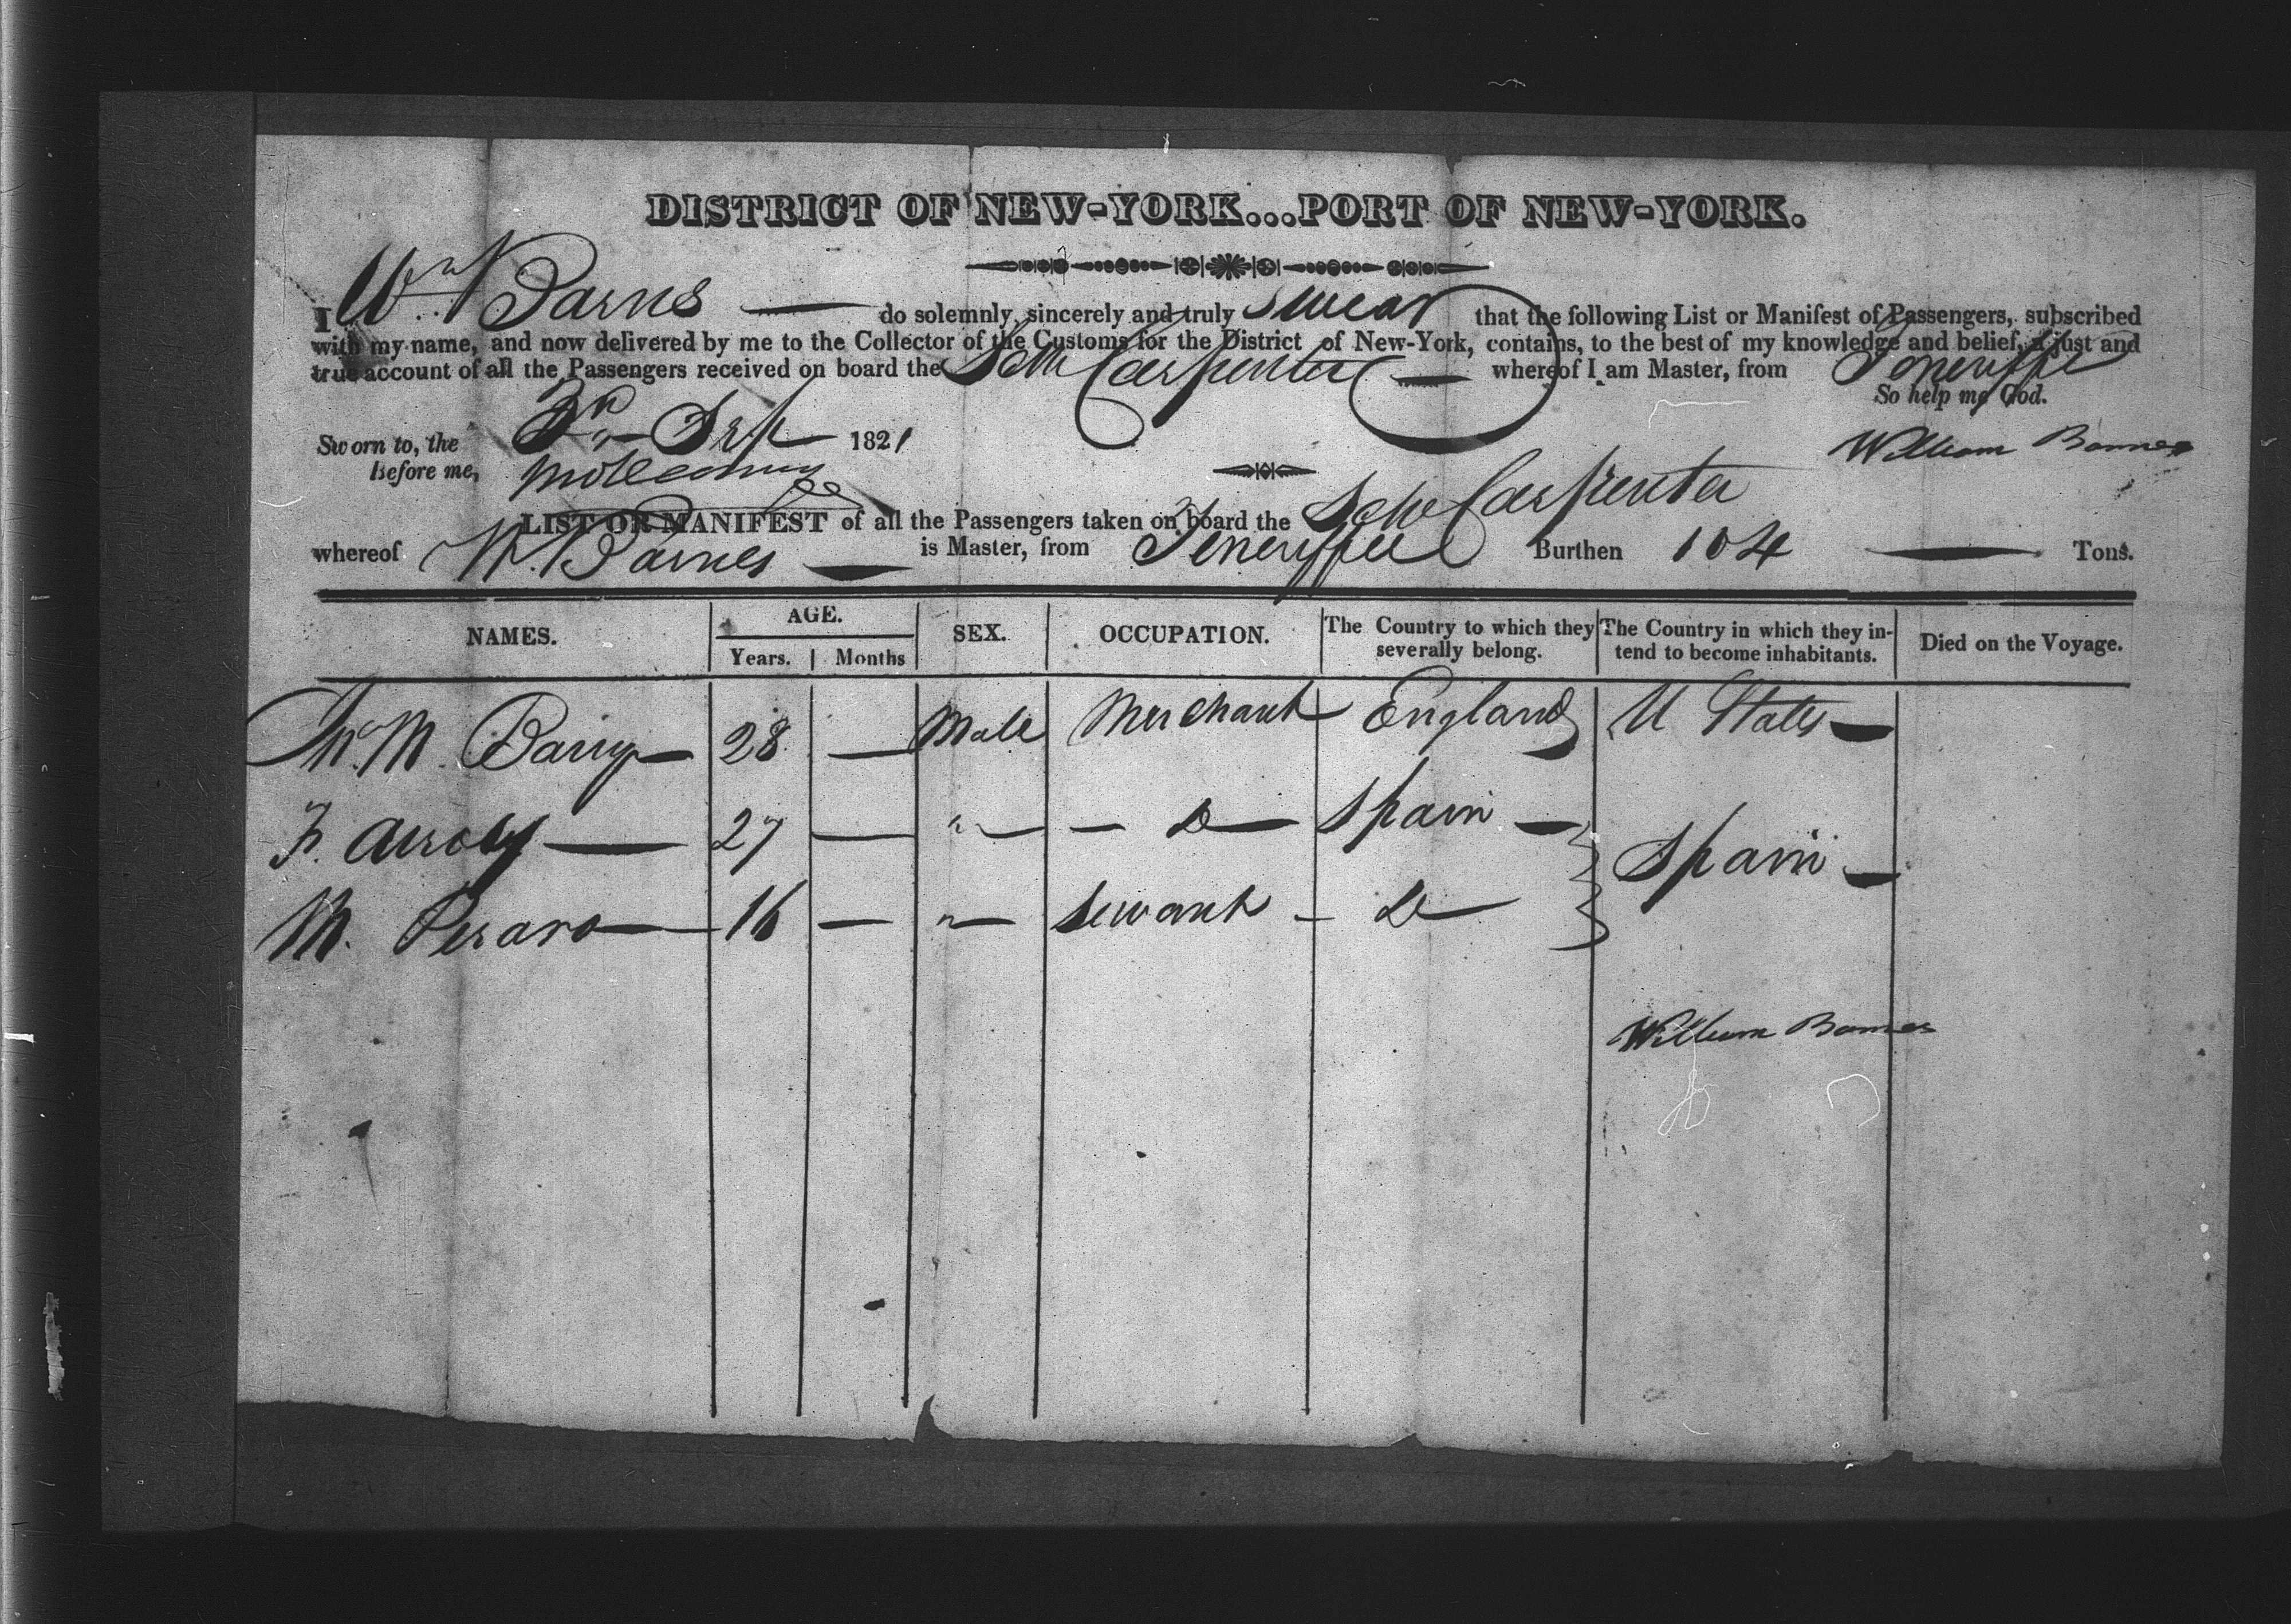 DISTRICT OF NEW-YORK...PORT OF NEW-YORK.
I Wm Barns do solemnly, sincerely and truly swear that the following List or Manifest of Passengers, subscribed
with my name, and now delivered by me to the Collector of the Customs for the District of New-York, contains, to the best of my knowledge and belief, a just and
true account of all the Passengers received on board the Schr Carpenter whereof I am Master, from Teneriffe
So help me God.
Sworn to, the 1821 William Barnes
Before me,
LIST OR MANIFEST of all the Passengers taken on board the Schr Carpenter
whereof W. Barnes is Master, from Teneriffe Burthen 104 Tons.
NAMES. AGE. Years. Months SEX. OCCUPATION. The Country to which they severally belong. The Country in which they intend to become inhabitants. Died on the Voyage.
Mr. M. Barry 28 — Male Merchant England U States
F. 27 — " Do Spain
M. 16 — " Servant Do Spain
William Barnes